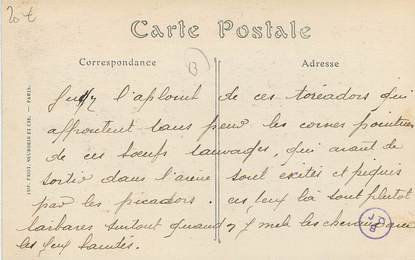 20 €
Carte Postale
Correspondance
Adresse
B
l'aplomb de ces toréadors qui
affrontent sans peur les cornes pointues
de ces boeufs sauvages, qui avant de
sortir dans l'arène sont exités et piqués
par les picadors. ces jeux là sont plutot
barbares surtout quand y met les chevaux
les yeux bandés.
IMP. PHOT. NEURDEIN ET CIE. — PARIS.
J D
B